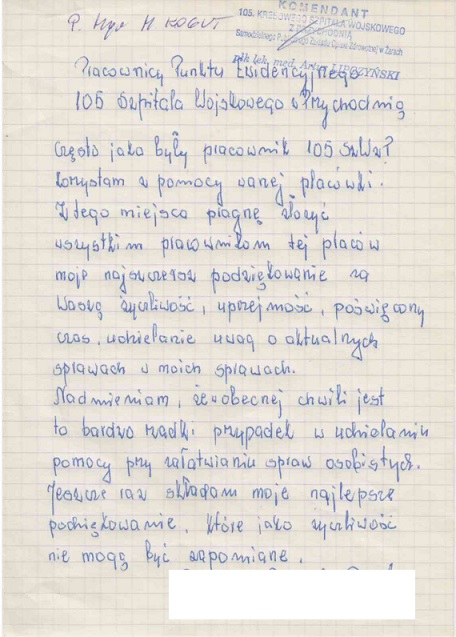 P. Mgr M KOGUT
KOMENDANT
105. KRESOWEGO SZPITALA WOJSKOWEGO
Z PRZYCHODNIĄ
Samodzielnego Publicznego Zakładu Opieki Zdrowotnej w Żarach
płk lek. med. Artur LIPCZYŃSKI
Pracownicy Punktu Ewidencyjnego
105 Szpitala Wojskowego z Przychodnią
Często jako były pracownik 105 SzWzP
korzystam z pomocy wanej placówki.
Z tego miejsca piagnę złożyć
wszystkim pracownikom tej placów
moje najszczersze podziękowanie za
Waszą życzliwość, uprzejmość, poświęcony
czas, udzielanie uwag o aktualnych
sprawach w moich sprawach.
Nadmieniam, że w obecnej chwili jest
to bardzo rzadki przypadek w udzielaniu
pomocy przy załatwianiu spraw osobistych.
Jeszcze raz składam moje najlepsze
podziękowanie. Które jako życzliwość
nie mogą być zapomiane.